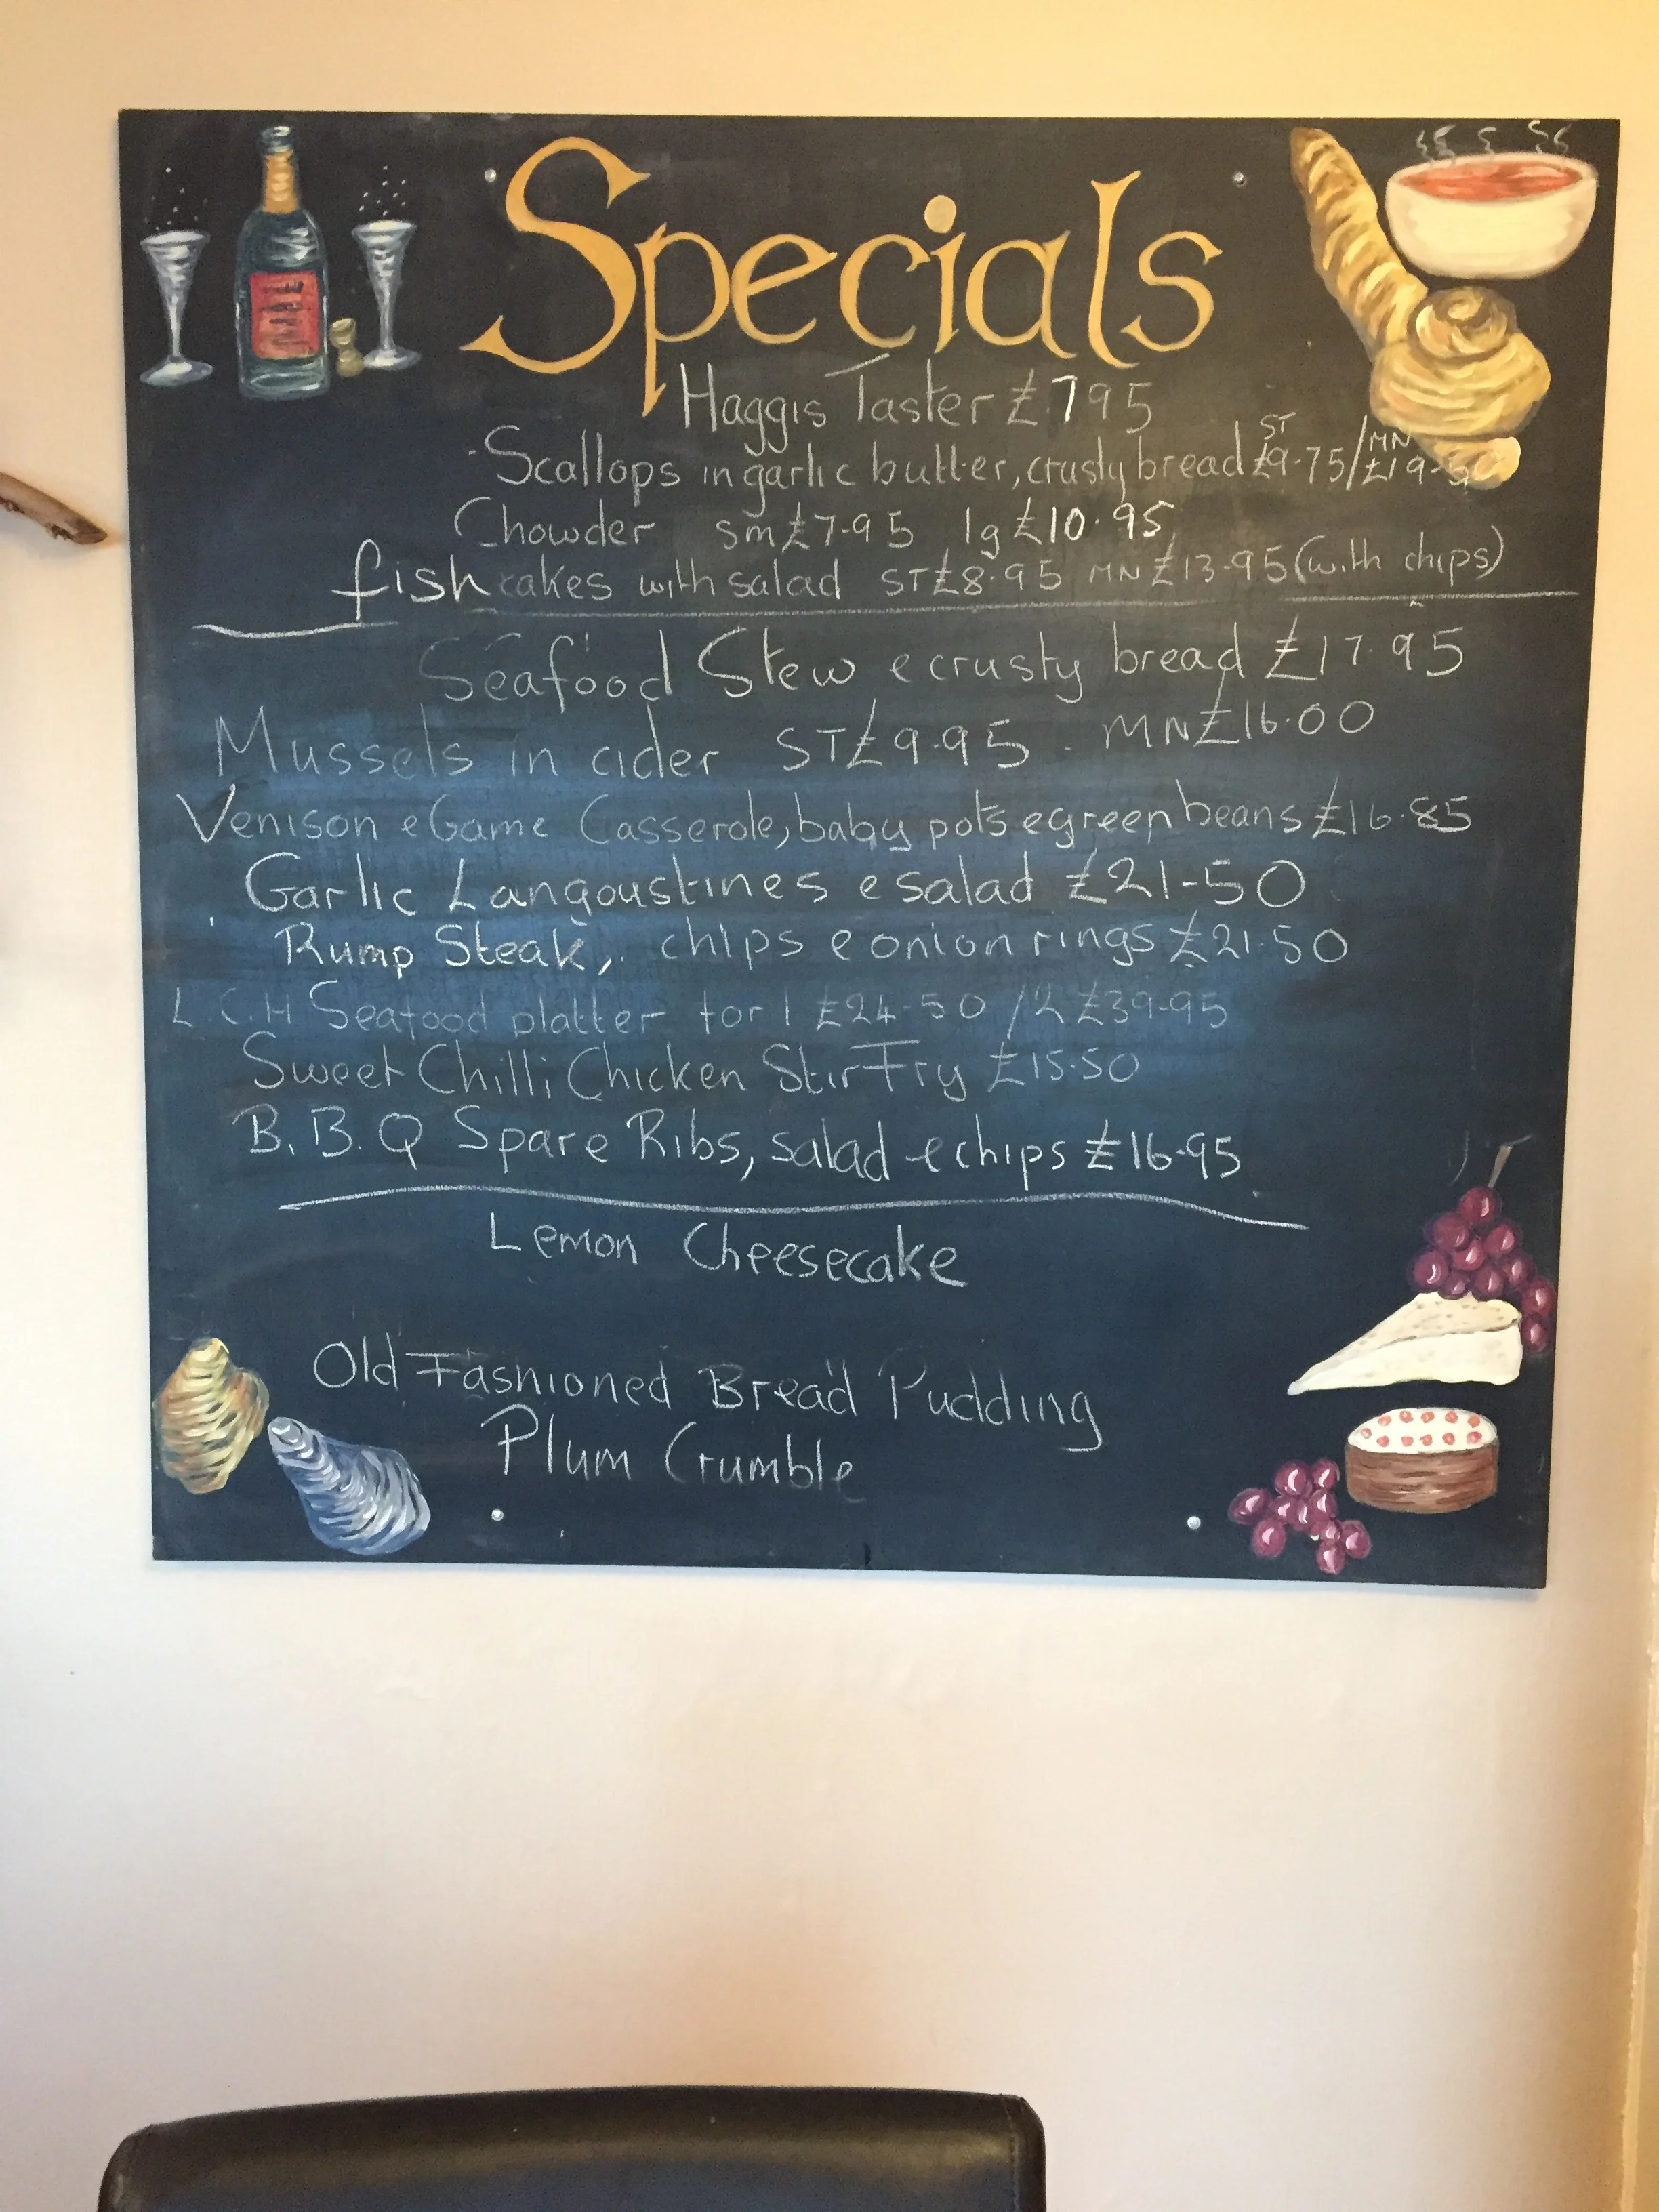 Specials
Haggis Taster £795
Scallops in garlic butter, crusty bread ST £9.75/MN £19-50
Chowder sm £7-95 lg £10.95
fishcakes with salad ST £8.95 MN £13.95 (with chips)
Seafood Stew e crusty bread £17.95
Mussels in cider ST £9.95 MN £16.00
Venison e Game Casserole, baby pots e green beans £16.85
Garlic Langoustines e salad £21-50
Rump Steak, chips e onion rings £21.50
L.C.H Seafood platter for 1 £24-50 /2 £39-95
Sweet Chilli Chicken Stir Fry £15.50
B.B.Q Spare Ribs, salad e chips £16.95
Lemon Cheesecake
Old Fashioned Bread Pudding
Plum Crumble